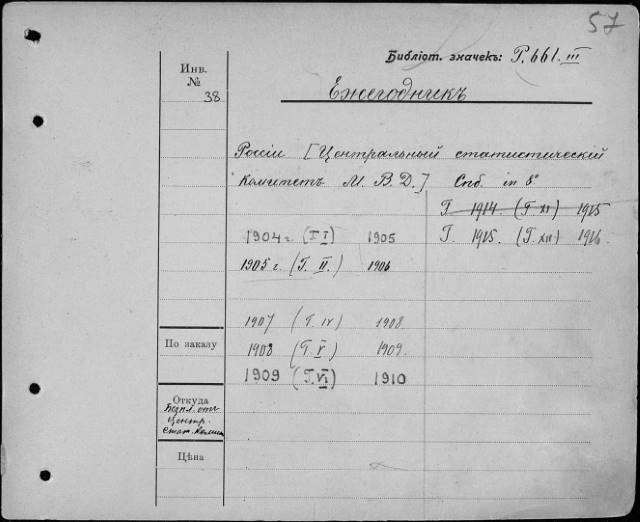 57
Библіот. значекъ: Р. 661. III
Инв.
№
38
Ежегодникъ
Россіи [Центральный статистическій
Комитетъ М. В. Д.] Спб. in 8°
Г. 1914. (Г. XI) 1915
1904 г. (Г. I) 1905
Г. 1915. (Г. XII) 1916
1905 г. (Г. II.) 1906
1907 (Г. IV) 1908
По заказу
1908 (Г. V) 1909.
1909 (Г. VI) 1910
Откуда
Безпл. отъ
Центр.
Стат. Комит.
Цѣна